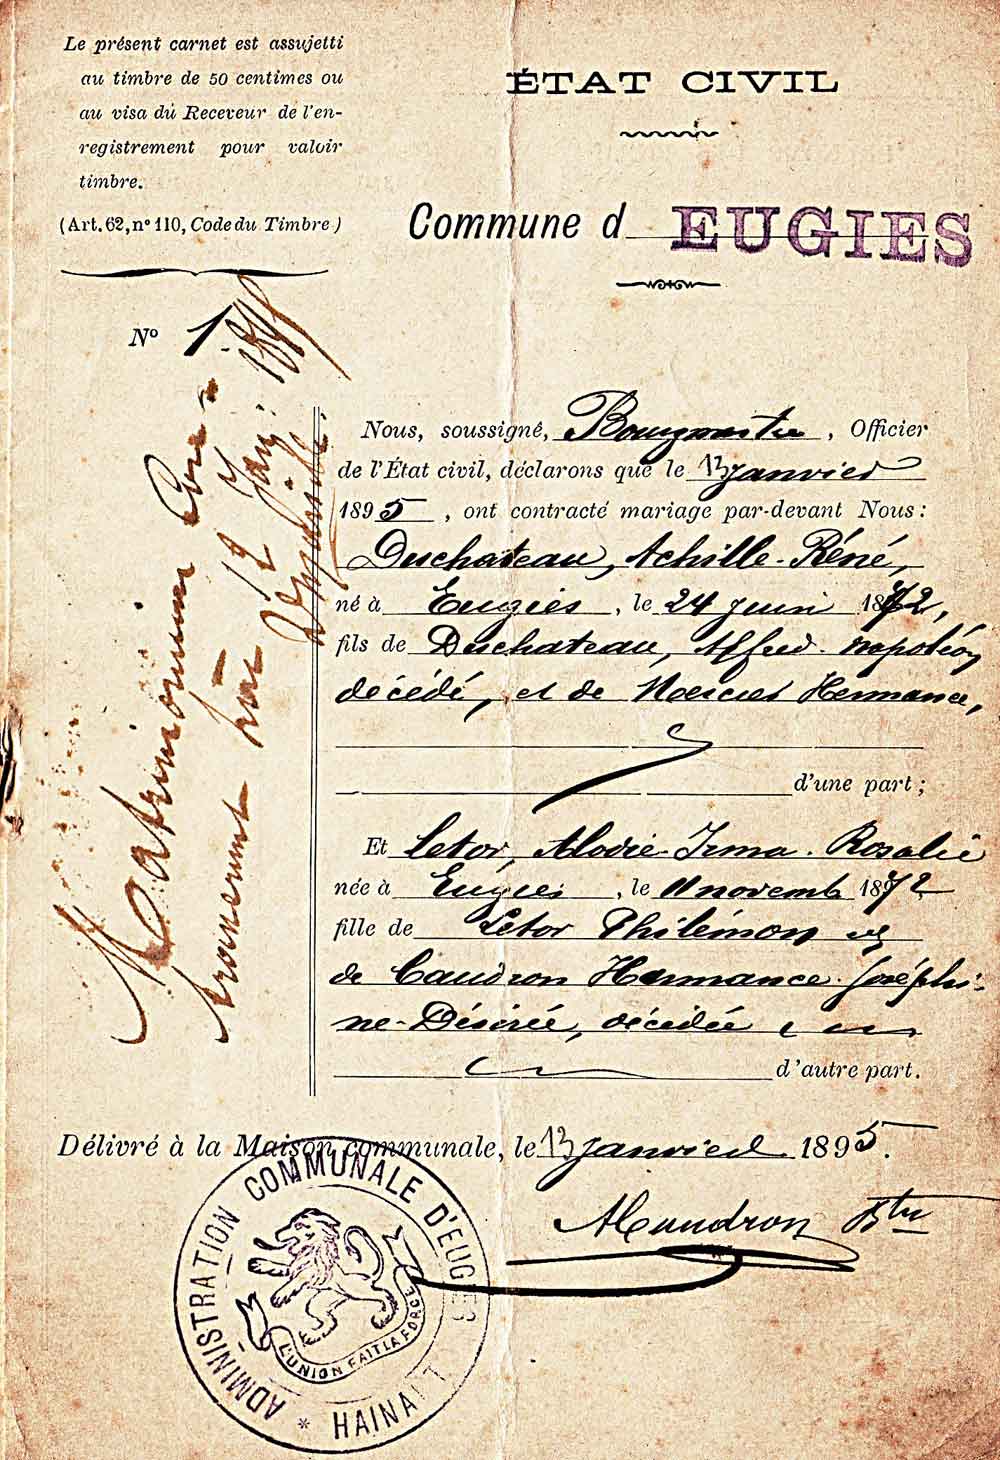 Le présent carnet est assujetti
au timbre de 50 centimes ou
au visa du Receveur de l'en-
registrement pour valoir
timbre.
(Art. 62, nº 110, Code du Timbre)
ÉTAT CIVIL
Commune d EUGIES
Nº 1
Matrimonium
hoc 12
Nous, soussigné, Bourgmestre, Officier
de l'État civil, déclarons que le 13 janvier
1895, ont contracté mariage par-devant Nous:
Duchateau, Achille-Réné,
né à Eugies, le 24 juin 1872,
fils de Duchateau, Alfred-napoléon
décédé, et de Hermance,
d'une part;
Et Letor, Alodie-Irma-Rosalie
née à Eugies, le 11 novemb 1872
fille de Letor Philémon et
de Caudron Hermance-Joséphi-
ne-Désirée, décédée
d'autre part.
Délivré à la Maison communale, le 13 janvier 1895.
Btre
ADMINISTRATION COMMUNALE D'EUGIES
L'UNION FAIT LA FORCE
* HAINAUT